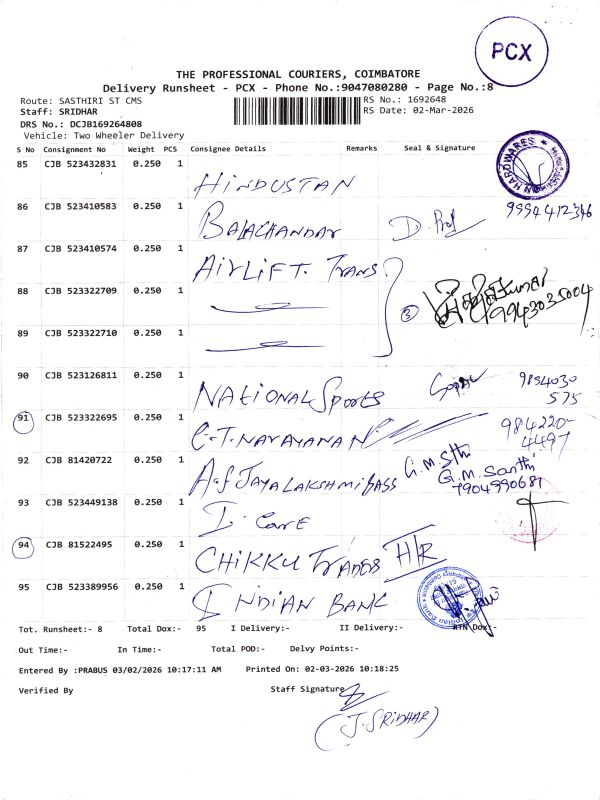 PCX
THE PROFESSIONAL COURIERS, COIMBATORE
Delivery Runsheet - PCX - Phone No.:9047080280 - Page No.:8
Route: SASTHIRI ST CMS
RS No.: 1692648
Staff: SRIDHAR
RS Date: 02-Mar-2026
DRS No.: DCJB169264808
Vehicle: Two Wheeler Delivery
S No Consignment No Weight PCS Consignee Details Remarks Seal & Signature
85 CJB 523432831 0.250 1 HINDUSTAN
HARDWARES
86 CJB 523410583 0.250 1 BALACHANDAR 9994412346
87 CJB 523410574 0.250 1 AIRLIFT. TRANS
88 CJB 523322709 0.250 1 3 9943035004
89 CJB 523322710 0.250 1
90 CJB 523126811 0.250 1 NATIONAL SPORTS Gopal 9894030
575
91 CJB 523322695 0.250 1 C.T. NARAYANAN 984220-
4497
92 CJB 81420722 0.250 1 JAYALAKSHMI G.M. Santhi
7904990681
93 CJB 523449138 0.250 1 I. CARE
94 CJB 81522495 0.250 1 CHIKKU TRADERS
95 CJB 523389956 0.250 1 INDIAN BANK
Indian Bank
Tot. Runsheet:- 8 Total Dox:- 95 I Delivery:- II Delivery:- RTN Dox:-
Out Time:- In Time:- Total POD:- Delvy Points:-
Entered By :PRABUS 03/02/2026 10:17:11 AM Printed On: 02-03-2026 10:18:25
Verified By Staff Signature
(J. SRIDHAR)